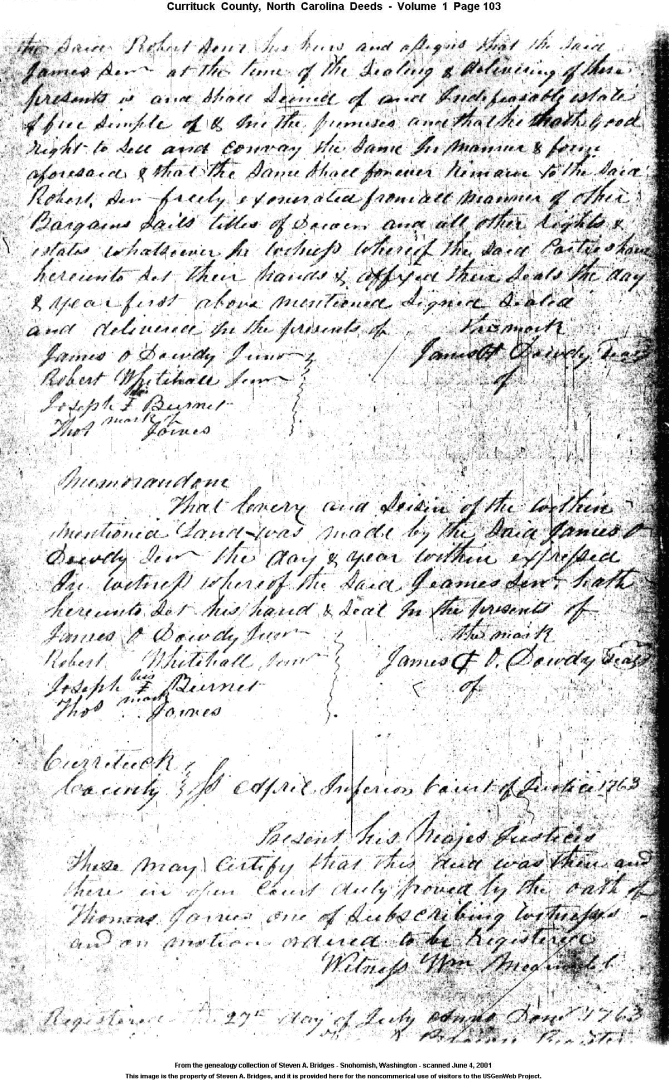 Currituck County, North Carolina Deeds - Volume 1 Page 103
the Said Robert Senr his heirs and assigns that the Said
James Senr at the time of the Sealing & delivering of these
presents is and Shall Seized of and Indefeasable estate
of fee Simple of & In the premises and that he hath Good
right to Sell and convay the Same In Manner & form
aforesaid & that the Same Shall forever Remain to the Said
Robert Senr freely exonerated from all manner of other
Bargains Sails titles of Dower and all other rights &
estates whatsoever In witness whereof the Said Parties have
hereunto Set their hands & affixed their Seals the day
& year first above mentioned Signed Sealed
and delivered In the presents of the mark
James O Dowdy Junr James O Dowdy Seal
Robert Whitehall Junr of
his
Joseph I Burnet
mark of
Thos Jarves
Memorandom
That Lovery and Seisin of the within
mentioned Land was made by the Said James O
Dowdy Senr the day & year within expressed
In witness whereof the Said Jeames Senr hath
hereunto Set his hand & Seal In the presents of
James O Dowdy Junr the mark
Robert Whitehall Junr James O. Dowdy Seal
his of
Joseph I Burnet
mark
Thos Jarves
Currituck
County Ss April Inferior Court of Justice 1763
Present his Majes Justices
These may Certify that this deed was then and
there in open Court duly proved by the oath of
Thomas Jarves one of Subscribing witnesses
and on motion ordered to be Registered
Witness Wm
Registered the 27th day of July Anno Dom 1763
Register
From the genealogy collection of Steven A. Bridges - Snohomish, Washington - scanned June 4, 2001
This image is the property of Steven A. Bridges, and it is provided here for the noncommerical use of visitors to the USGenWeb Project.